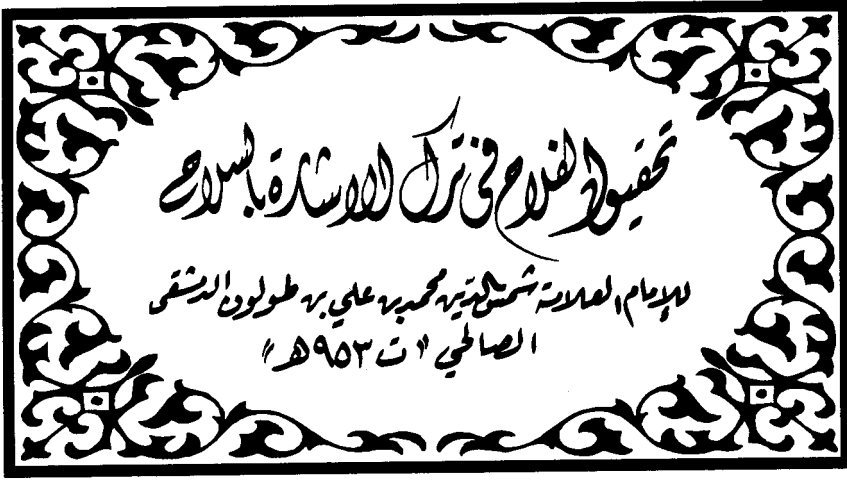 تحقيق الفلاح في ترك الإشارة بالسلاح
للإمام العلامة شمس الدين محمد بن علي بن طولون الدمشقي
الصالحي "ت ٩٥٣هـ"